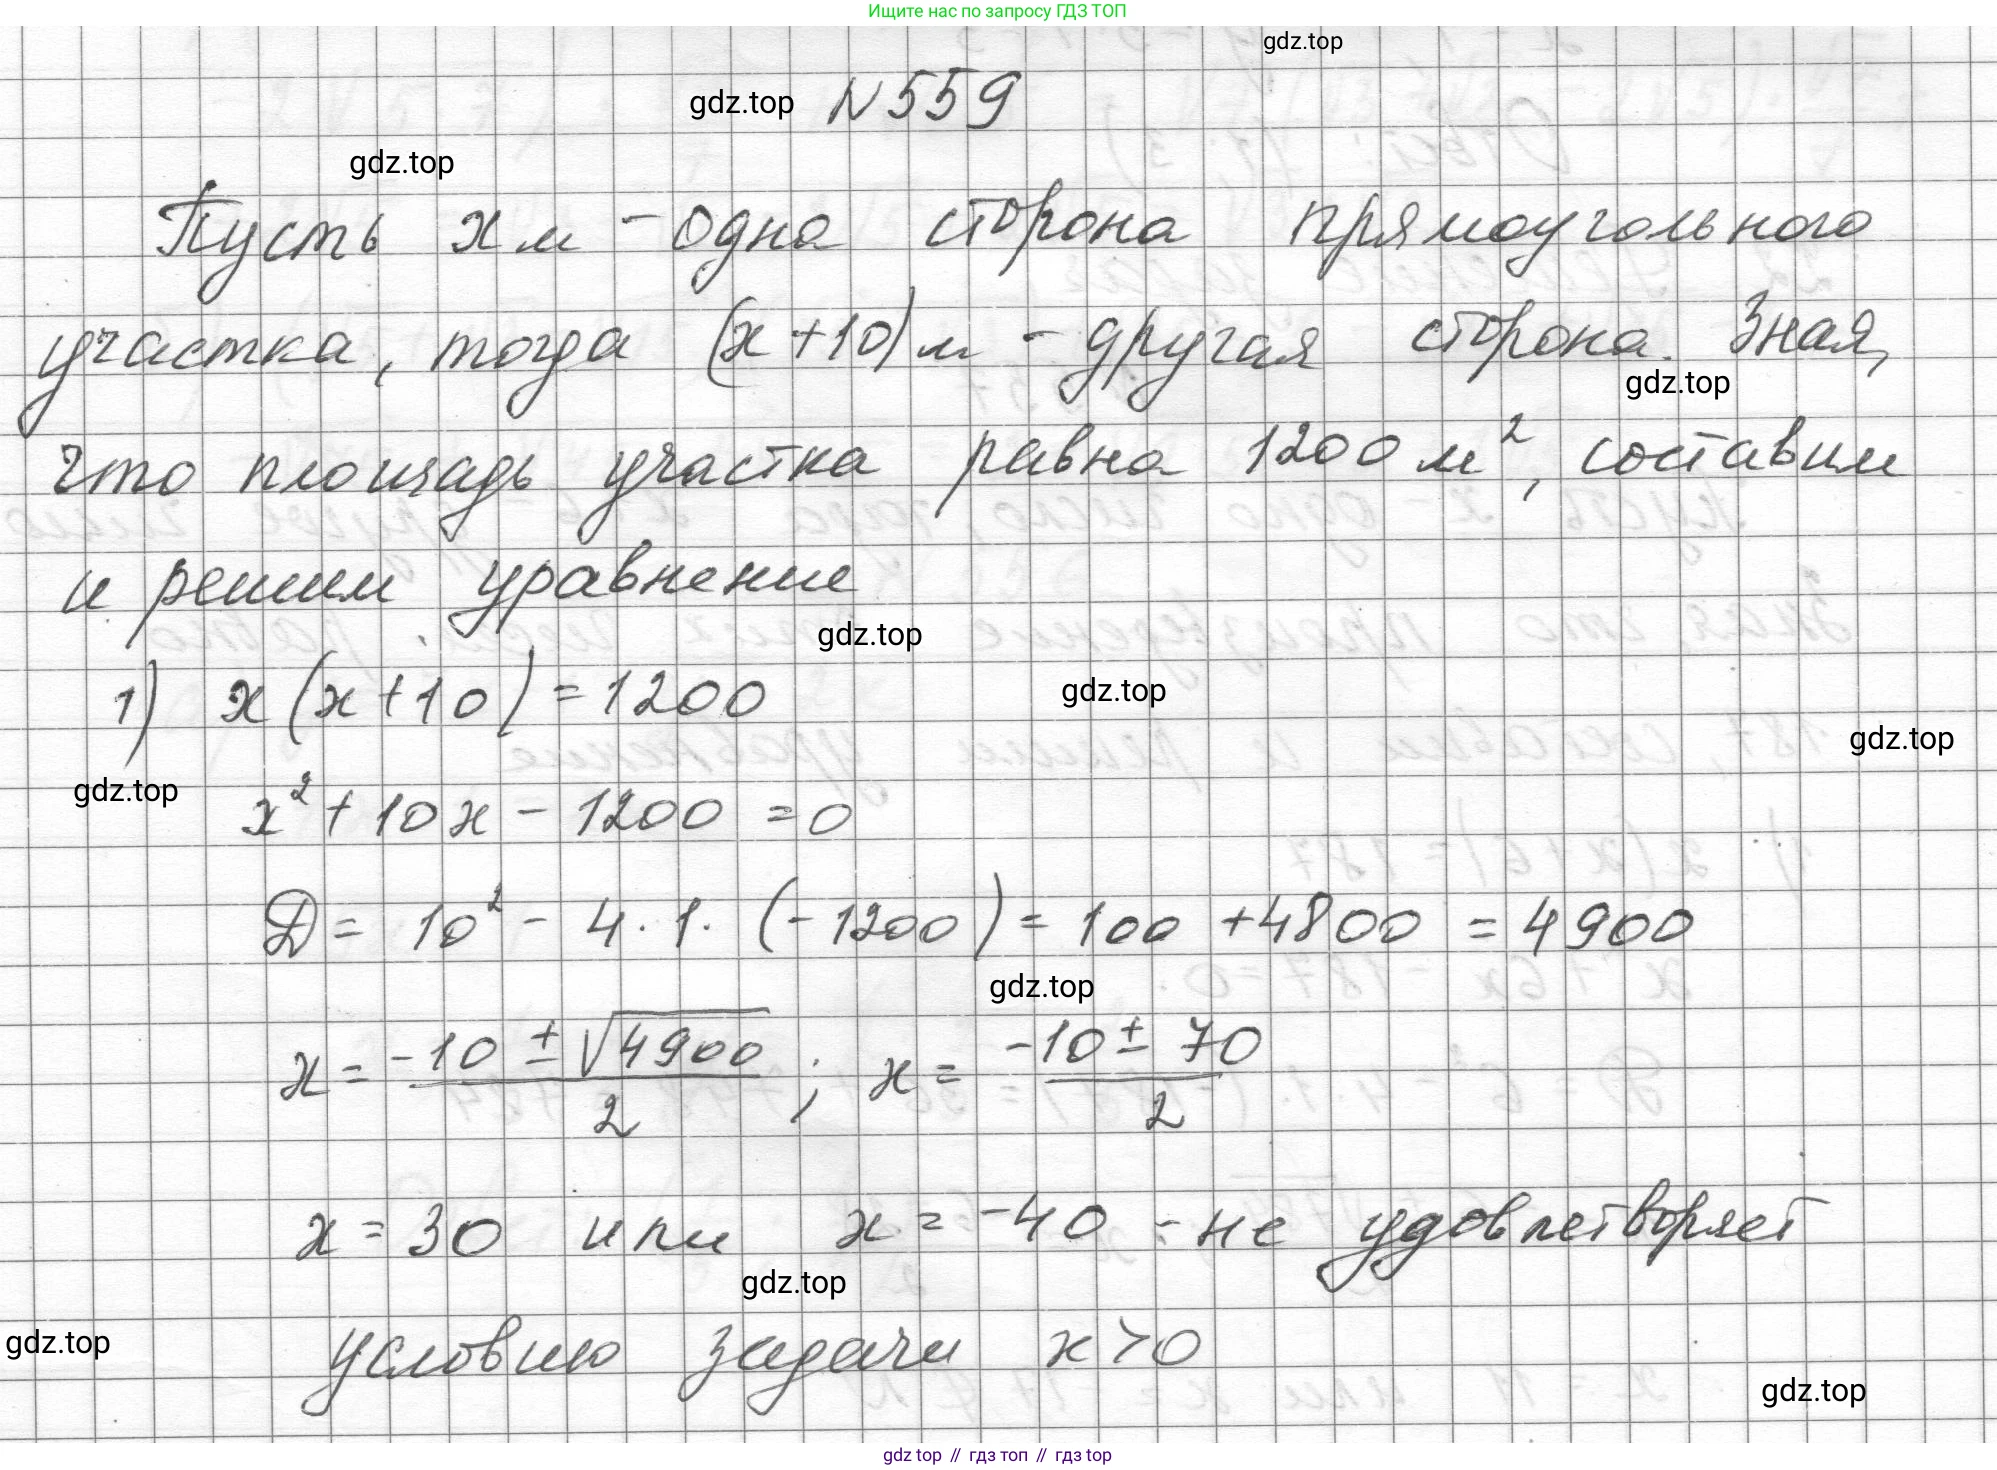 Ищите нас по запросу ГДЗ ТОП
gdz.top
gdz.top N 559
gdz.top
Пусть x м - одна сторона прямоугольного
участка, тогда (x+10) м - другая сторона. Зная,
gdz.top
что площадь участка равна 1200 м², составим
и решим уравнение
gdz.top
1) x(x+10)=1200
gdz.top
gdz.top
gdz.top
x²+10x-1200=0
D= 10² - 4·1·(-1200)= 100 +4800 = 4900
gdz.top
x= (-10 ± √4900)/2 ; x= (-10 ± 70)/2
x=30 или x=-40 - не удовлетворяет
gdz.top
gdz.top
условию задачи x>0
gdz.top
gdz top // гдз топ // гдз top